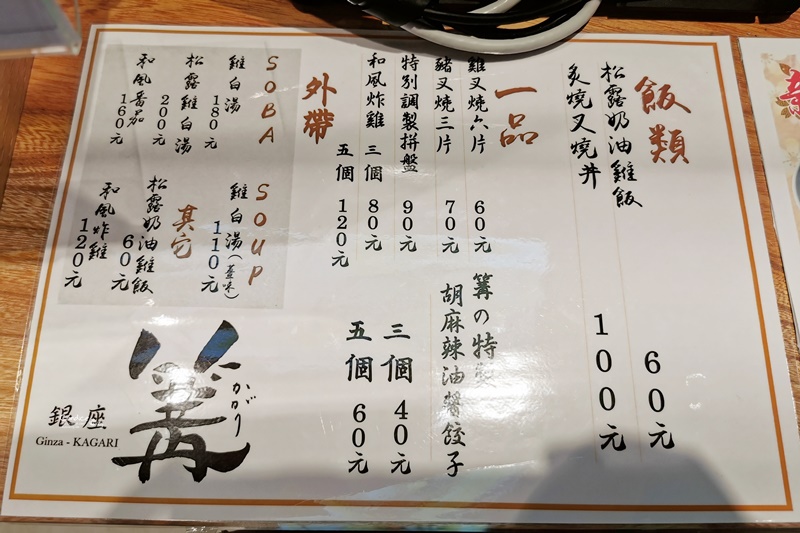 飯類
松露奶油雞飯 60元
炙燒叉燒丼 100元
一品
雞叉燒六片 60元
豬叉燒三片 70元
特別調製拼盤 90元
和風炸雞 三個 80元
五個 120元
篝の特製
胡麻辣油醬餃子
三個 40元
五個 60元
外帶
SOBA
雞白湯 180元
松露雞白湯 200元
和風番茄 160元
SOUP
雞白湯(蓋味) 110元
其它
松露奶油雞飯 60元
和風炸雞 120元
篝
かがり
銀座
Ginza - KAGARI